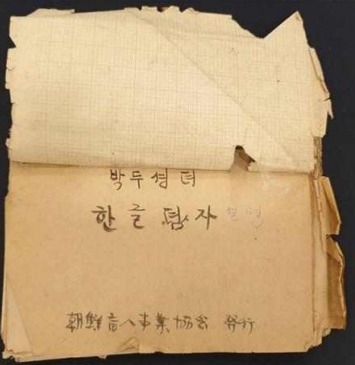 박두성 더
한글 뎜자 설명
朝鮮盲人事業協會 發行